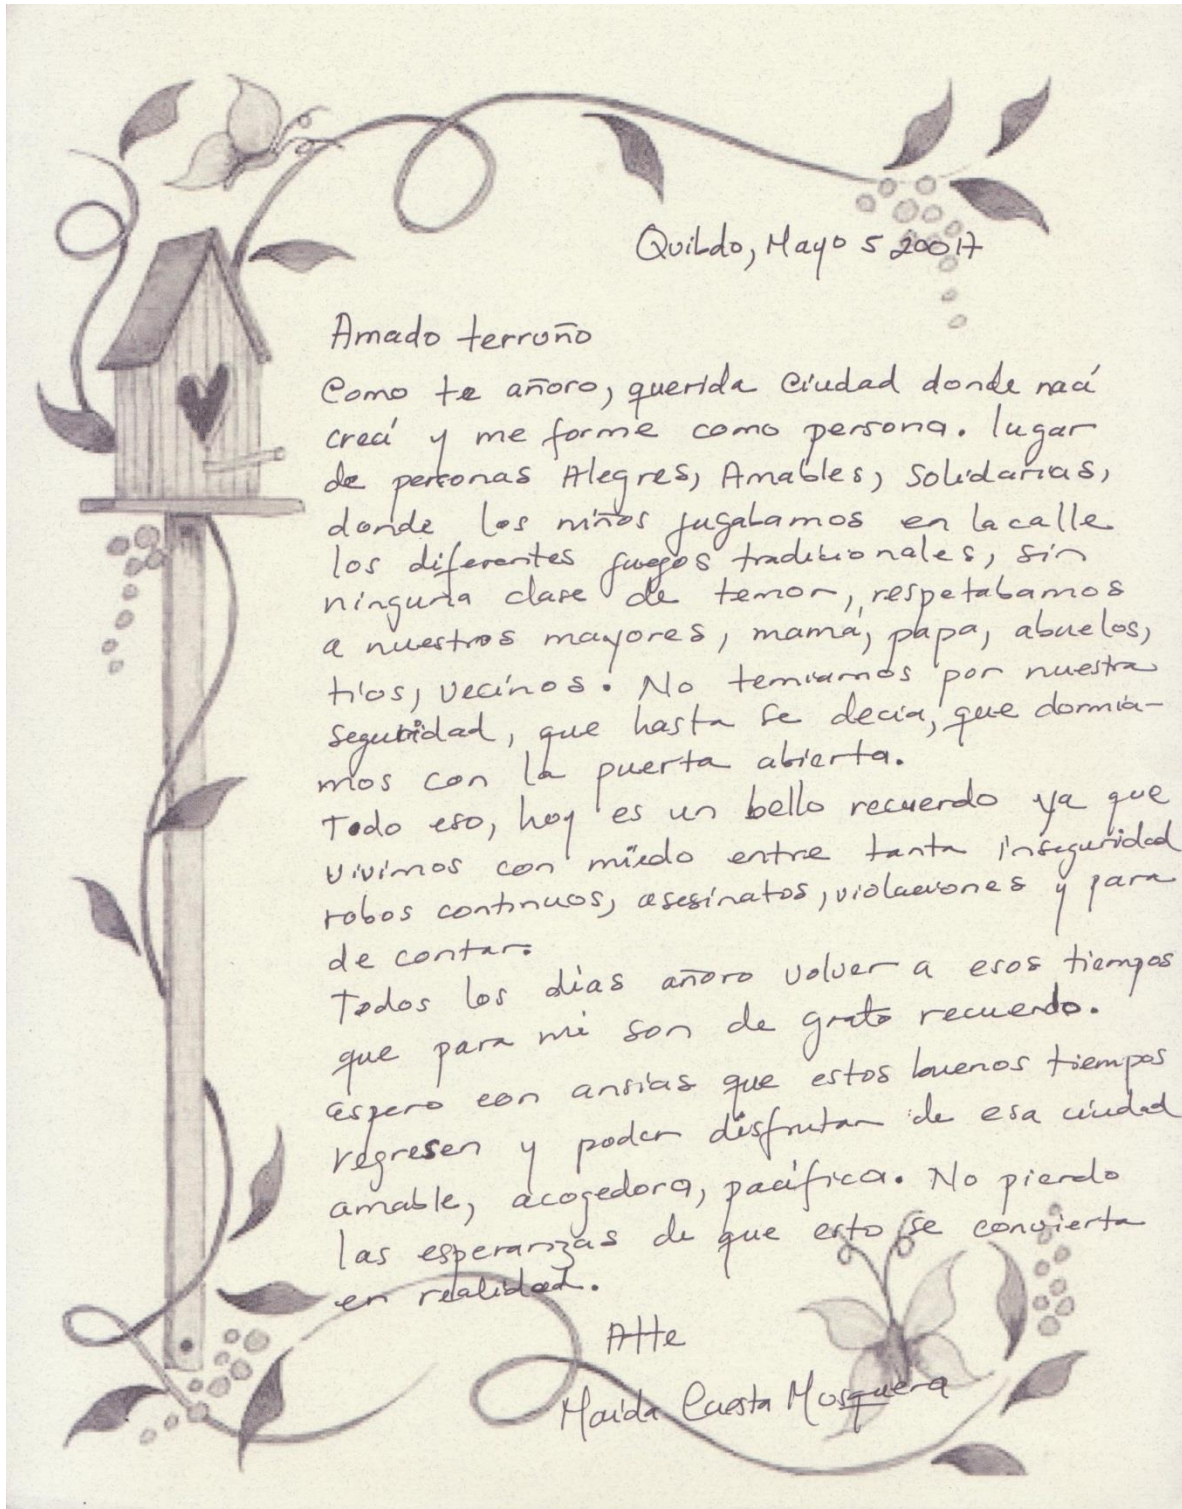 Quibdo, Mayo 5 20017
Amado terruño
Como te añoro, querida Ciudad donde nací
crecí y me forme como persona. lugar
de personas Alegres, Amables, Solidarias,
donde los niños jugabamos en la calle
los diferentes juegos tradicionales, sin
ninguna clase de temor, respetabamos
a nuestros mayores, mamá, papa, abuelos,
tíos, vecinos. No temiamos por nuestra
seguridad, que hasta se decía, que dormía-
mos con la puerta abierta.
Todo eso, hoy es un bello recuerdo ya que
vivimos con miedo entre tanta inseguridad
robos continuos, asesinatos, violaciones y para
de contar.
Todos los días añoro volver a esos tiempos
que para mi son de grato recuerdo.
espero con ansias que estos buenos tiempos
regresen y poder disfrutar de esa ciudad
amable, acogedora, pacífica. No pierdo
las esperanzas de que esto se convierta
en realidad.
Atte
Maida Cuesta Mosquera